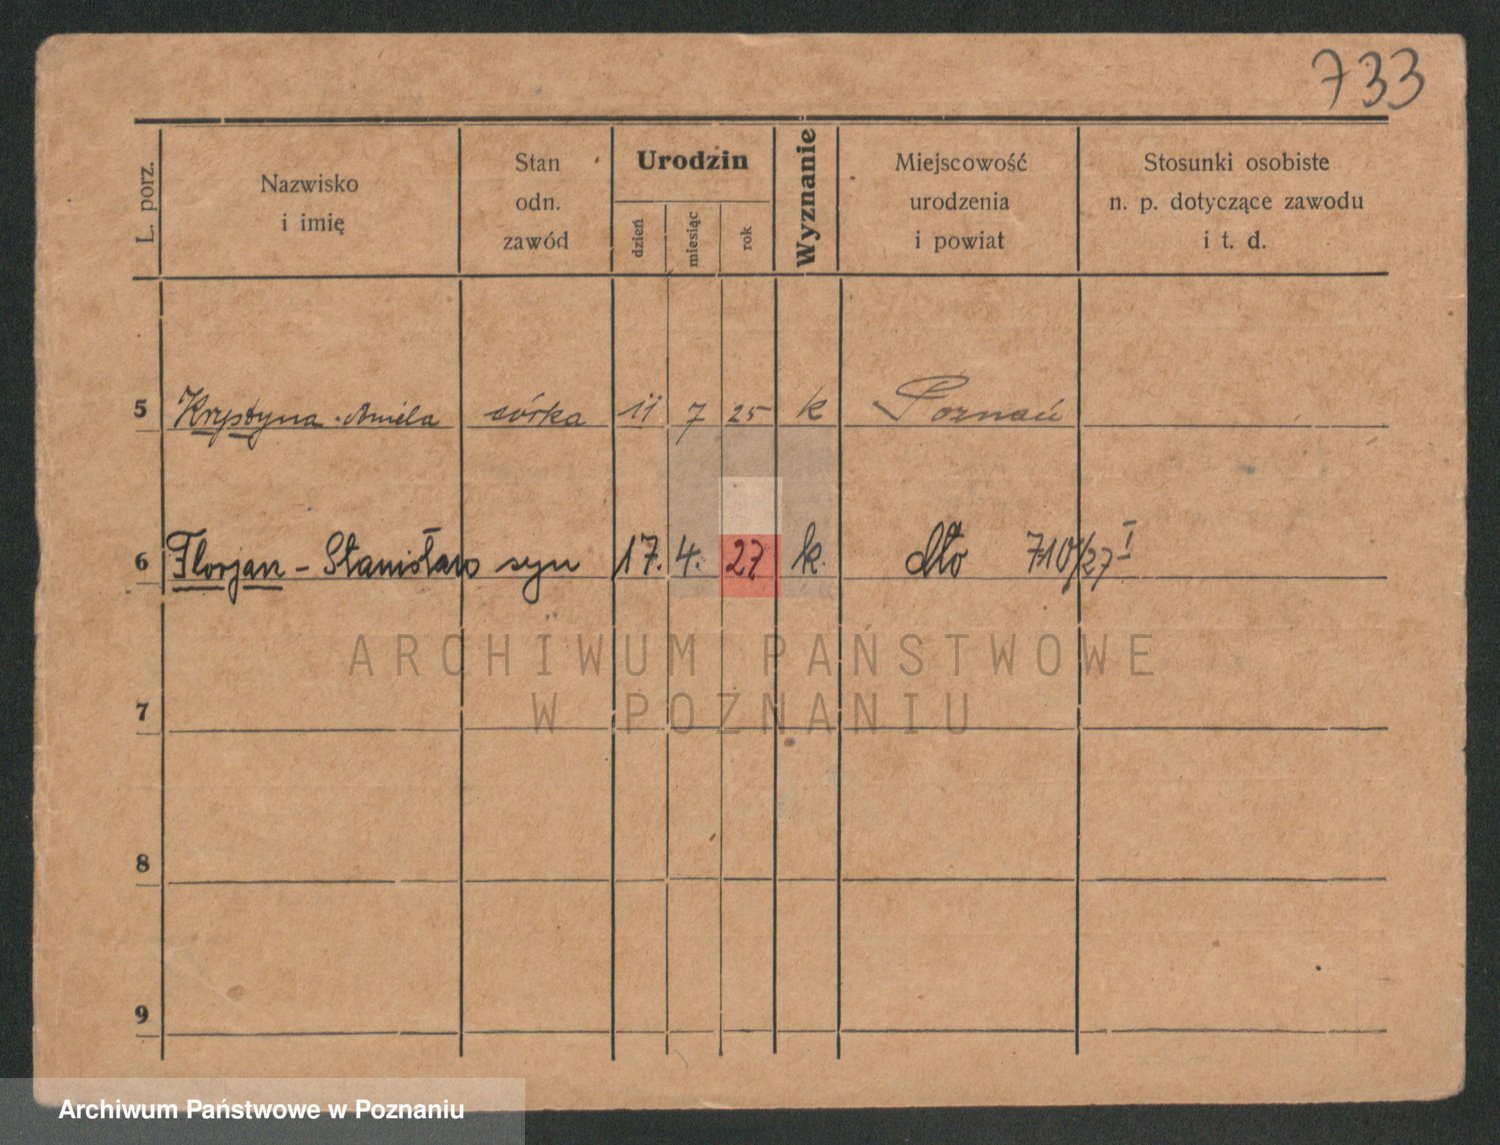 733
L. porz.
Nazwisko
i imię
Stan
odn.
zawód
Urodzin
dzień
miesiąc
rok
Wyznanie
Miejscowość
urodzenia
i powiat
Stosunki osobiste
n. p. dotyczące zawodu
i t. d.
5 Krystyna Aniela córka 11 7 25 k Poznań
6 Florjan - Stanisław syn 17. 4. 27 k. dto 710/27 I
ARCHIWUM PAŃSTWOWE
W POZNANIU
7
8
9
Archiwum Państwowe w Poznaniu